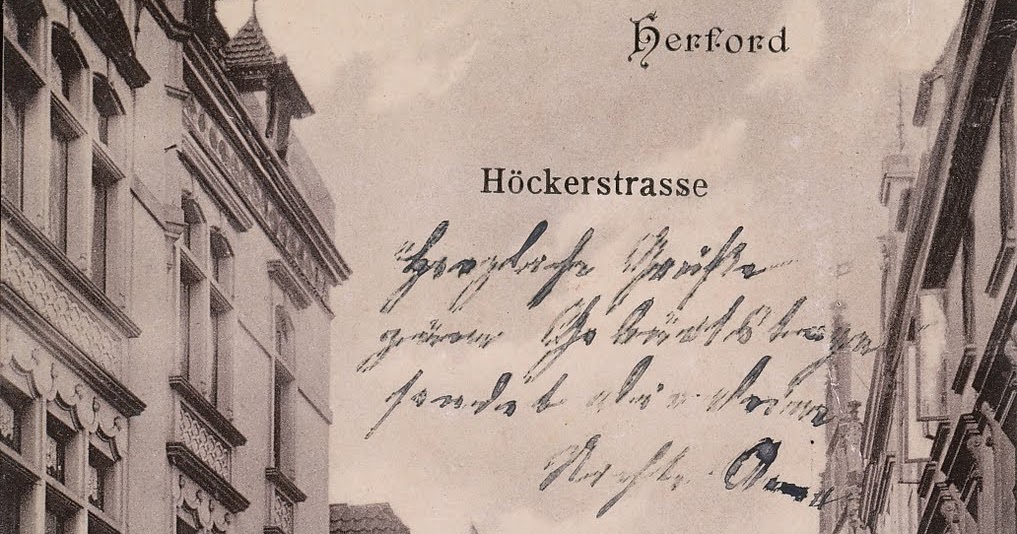 Herford
Höckerstrasse
Herzliche Grüße
zum Geburtstage
sendet dir deine
Nichte